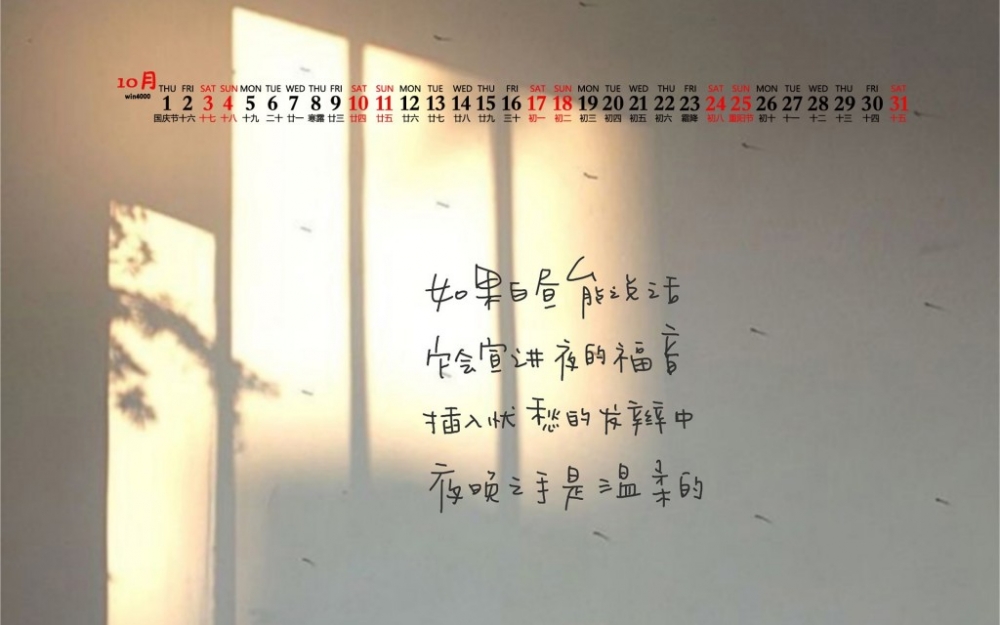 10月
win4000
THU FRI SAT SUN MON TUE WED THU FRI SAT SUN MON TUE WED THU FRI SAT SUN MON TUE WED THU FRI SAT SUN MON TUE WED THU FRI SAT
1 2 3 4 5 6 7 8 9 10 11 12 13 14 15 16 17 18 19 20 21 22 23 24 25 26 27 28 29 30 31
国庆节 十六 十七 十八 十九 二十 廿一 寒露 廿三 廿四 廿五 廿六 廿七 廿八 廿九 三十 初一 初二 初三 初四 初五 初六 霜降 初八 重阳节 初十 十一 十二 十三 十四 十五
如果白昼能说话
它会宣讲夜的福音
插入忧愁的发辫中
夜晚之手是温柔的